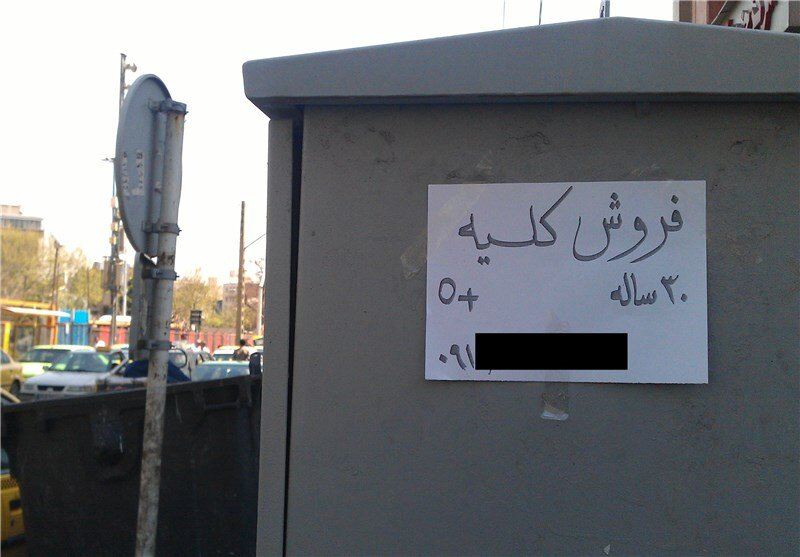 فروش کلیه
۳۰ ساله
O+
۰۹۱